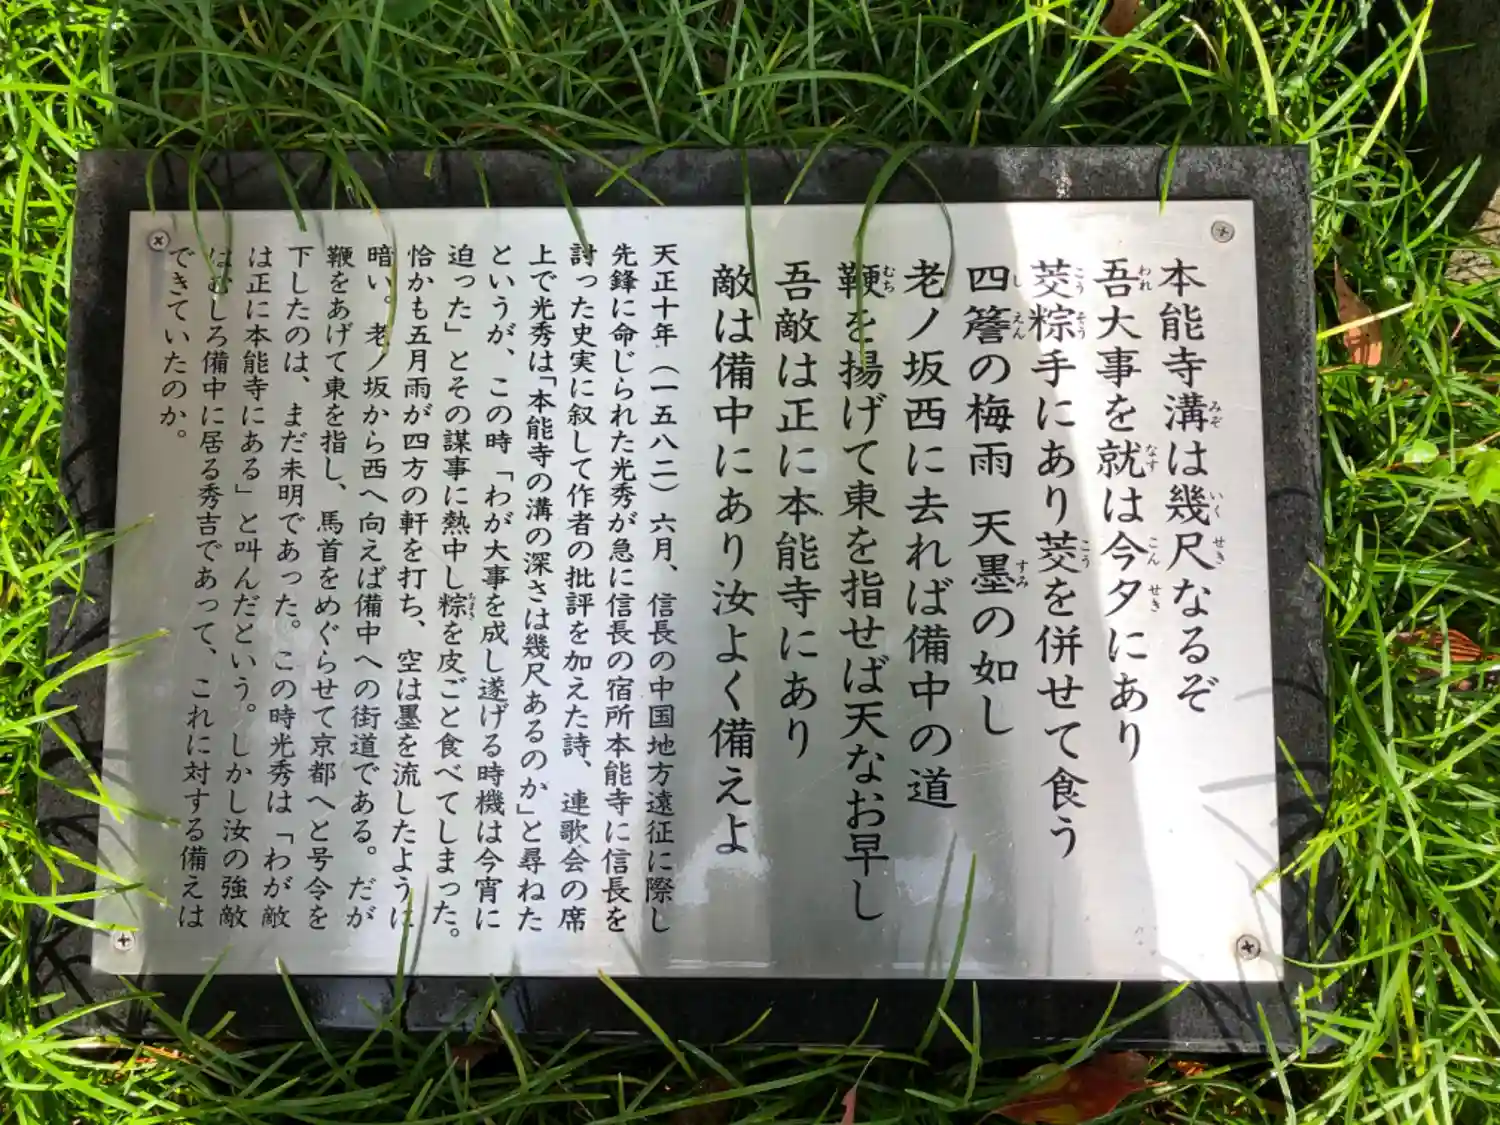 本能寺溝は幾尺なるぞ
吾大事を就は今夕にあり
茭粽手にあり茭を併せて食う
四簷の梅雨 天墨の如し
老ノ坂西に去れば備中の道
鞭を揚げて東を指せば天なお早し
吾敵は正に本能寺にあり
敵は備中にあり汝よく備えよ
天正十年(一五八二)六月、信長の中国地方遠征に際し
先鋒に命じられた光秀が急に信長の宿所本能寺に信長を
討った史実に叙して作者の批評を加えた詩、連歌会の席
上で光秀は「本能寺の溝の深さは幾尺あるのか」と尋ねた
というが、この時「わが大事を成し遂げる時機は今宵に
迫った」とその謀事に熱中し粽を皮ごと食べてしまった。
恰かも五月雨が四方の軒を打ち、空は墨を流したように
暗い。老ノ坂から西へ向えば備中への街道である。だが
鞭をあげて東を指し、馬首をめぐらせて京都へと号令を
下したのは、まだ未明であった。この時光秀は「わが敵
は正に本能寺にある」と叫んだという。しかし汝の強敵
はむしろ備中に居る秀吉であって、これに対する備えは
できていたのか。